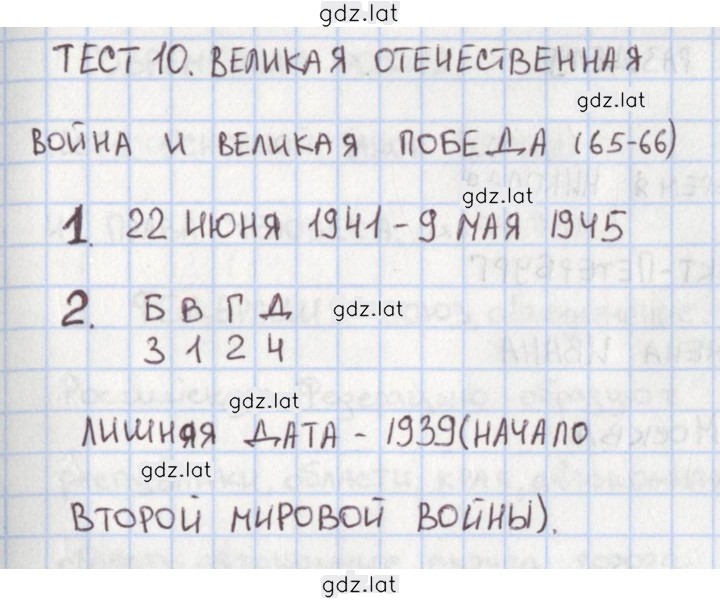 gdz.lat
ТЕСТ 10. ВЕЛИКАЯ ОТЕЧЕСТВЕННАЯ
gdz.lat
ВОЙНА И ВЕЛИКАЯ ПОБЕДА (65-66)
gdz.lat
1. 22 ИЮНЯ 1941 - 9 МАЯ 1945
2. Б В Г Д gdz.lat
3 1 2 4
gdz.lat
ЛИШНЯЯ ДАТА - 1939 (НАЧАЛО
gdz.lat
ВТОРОЙ МИРОВОЙ ВОЙНЫ).
gdz.lat